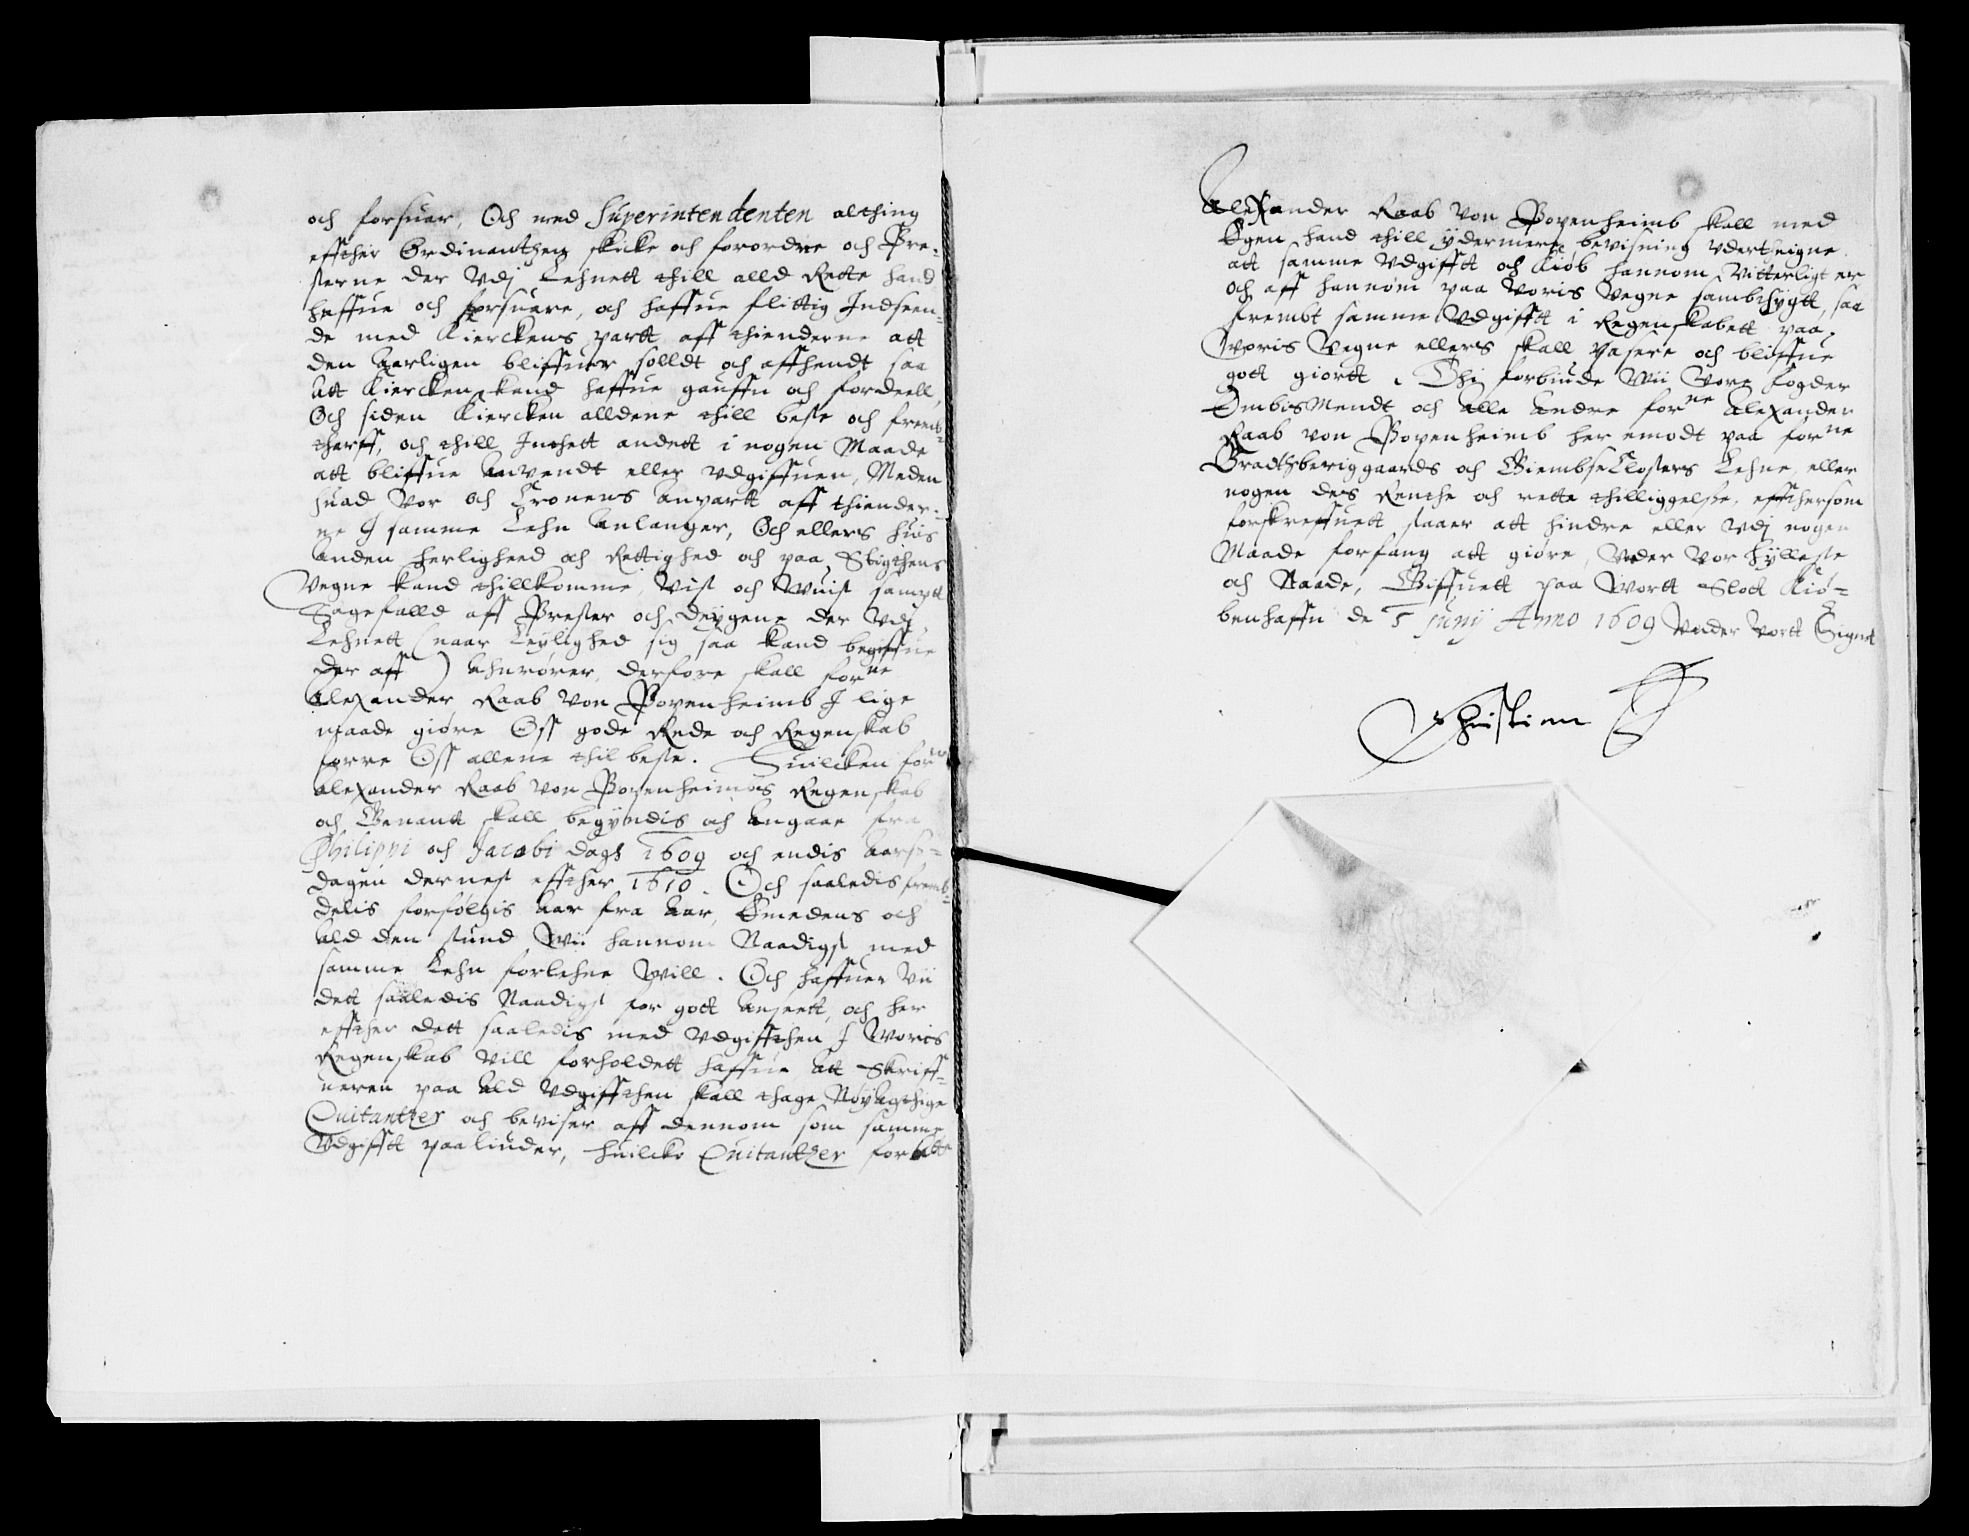 och forsuar, Och med Superintendenten althing
effther Ordinantzen skicke och forordne och Pre-
sterne der Vdj Lehnett thill alld Rette hand
haffue och forsuare, och haffue flittig Indseen-
de med Kierckens partt aff thienderne att
den Aarligen bliffuer solldt och affhendt saa
att Kiercken kand haffue gauffn och fordeell,
Och siden Kiercken alldene thill beste och fremb-
therff, och thill Inthett andett i nogen Maade
att bliffue Anvendt eller vdgiffuen, Meden
huad Vor och Cronens Anpartt aff thiender-
ne J samme Lehn Anlanger, Och ellers huis
Anden herligheed och Rettighed och paa Stigthens
Vegne kand thillkomme, Vist och Wuist sampt
Sagefalld aff Prester och Deygene der Vdj
Lehnett (naar Leylighed sig saa kand begiffue
der aff) Ahnrører, derfore skall forne
Alexander Raab Von Papenheimb J lige
maade giøre Oss gode Rede och Regenskab
forre Oss allene thil beste. Huilcken forne
Alexander Raab von Papenheimbs Regenskab
och Genant skall begyndis och Angaae fra
Philippi och Jacobi dags 1609 och endis Aars-
dagen dernest effther 1610. Och saaledis fremb-
delis forfølgis Aar fra Aar, Emedens och
Ald den stund Wii hannom Naadigst med
samme Lehn forlehne Will. Och haffuer Vii
dett saaledis Naadigst for gott Anseett, och her
effther dett saaledis med Vdgiffthen J Woris
Regenskab Vill forholdett haffue Att Skriff-
ueren paa Ald Vdgiffthen skall thage Nøyagthige
Quitantzer och beviser aff dennom som samme
Vdgifftt paaliuder, huilcke Quitantzer forne
Alexander Raab Von Papenheimb skall med
Egen hand thill ydermere bevisning Vdertheigne
att samme Vdgifftt och Kiøb hannom Vitterligt er
och aff hannom paa Voris Vegne sambthygtt, saa
frembt samme Vdgifftt i Regenskabett paa
Woris Vegne ellers skall pasere och bliffue
gott giortt. Thj forbiude Wii Vore fogder
Embismendt och Alle Andre forne Alexander
Raab von Papenheimb her emodt paa forne
Bradtzberiggaards och Giembsø Closters Lehne, eller
nogen des Renthe och rette thilliggelsse, effthersom
forskreffuett staaer att hindre eller Vdj nogen
Maade forfang att giøre, Vnder Vor Hylleste
och Naade, Giffuett paa Wortt Slott Kiø-
benhaffn de 5 Junij Anno 1609 Vnder Vortt Signet
Christian